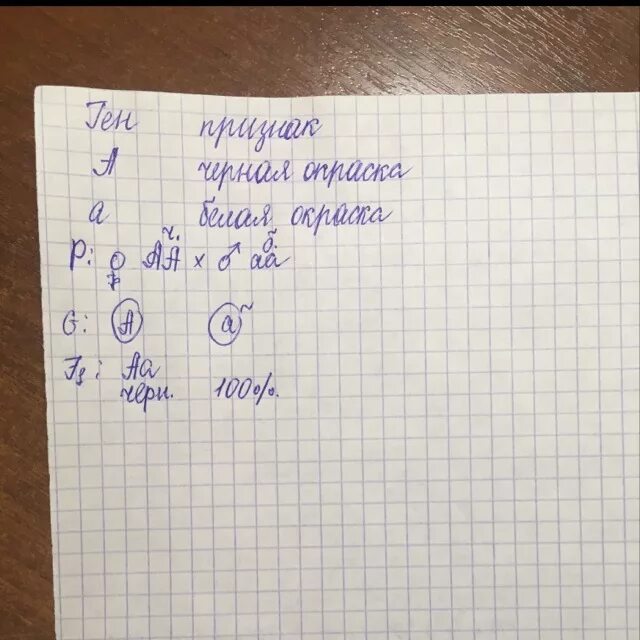 Ген признак
А черная опраска
а белая окраска
ч. б.
P: ♀ АА × ♂ аа
G: А а~
F₁: Аа
черн. 100%.